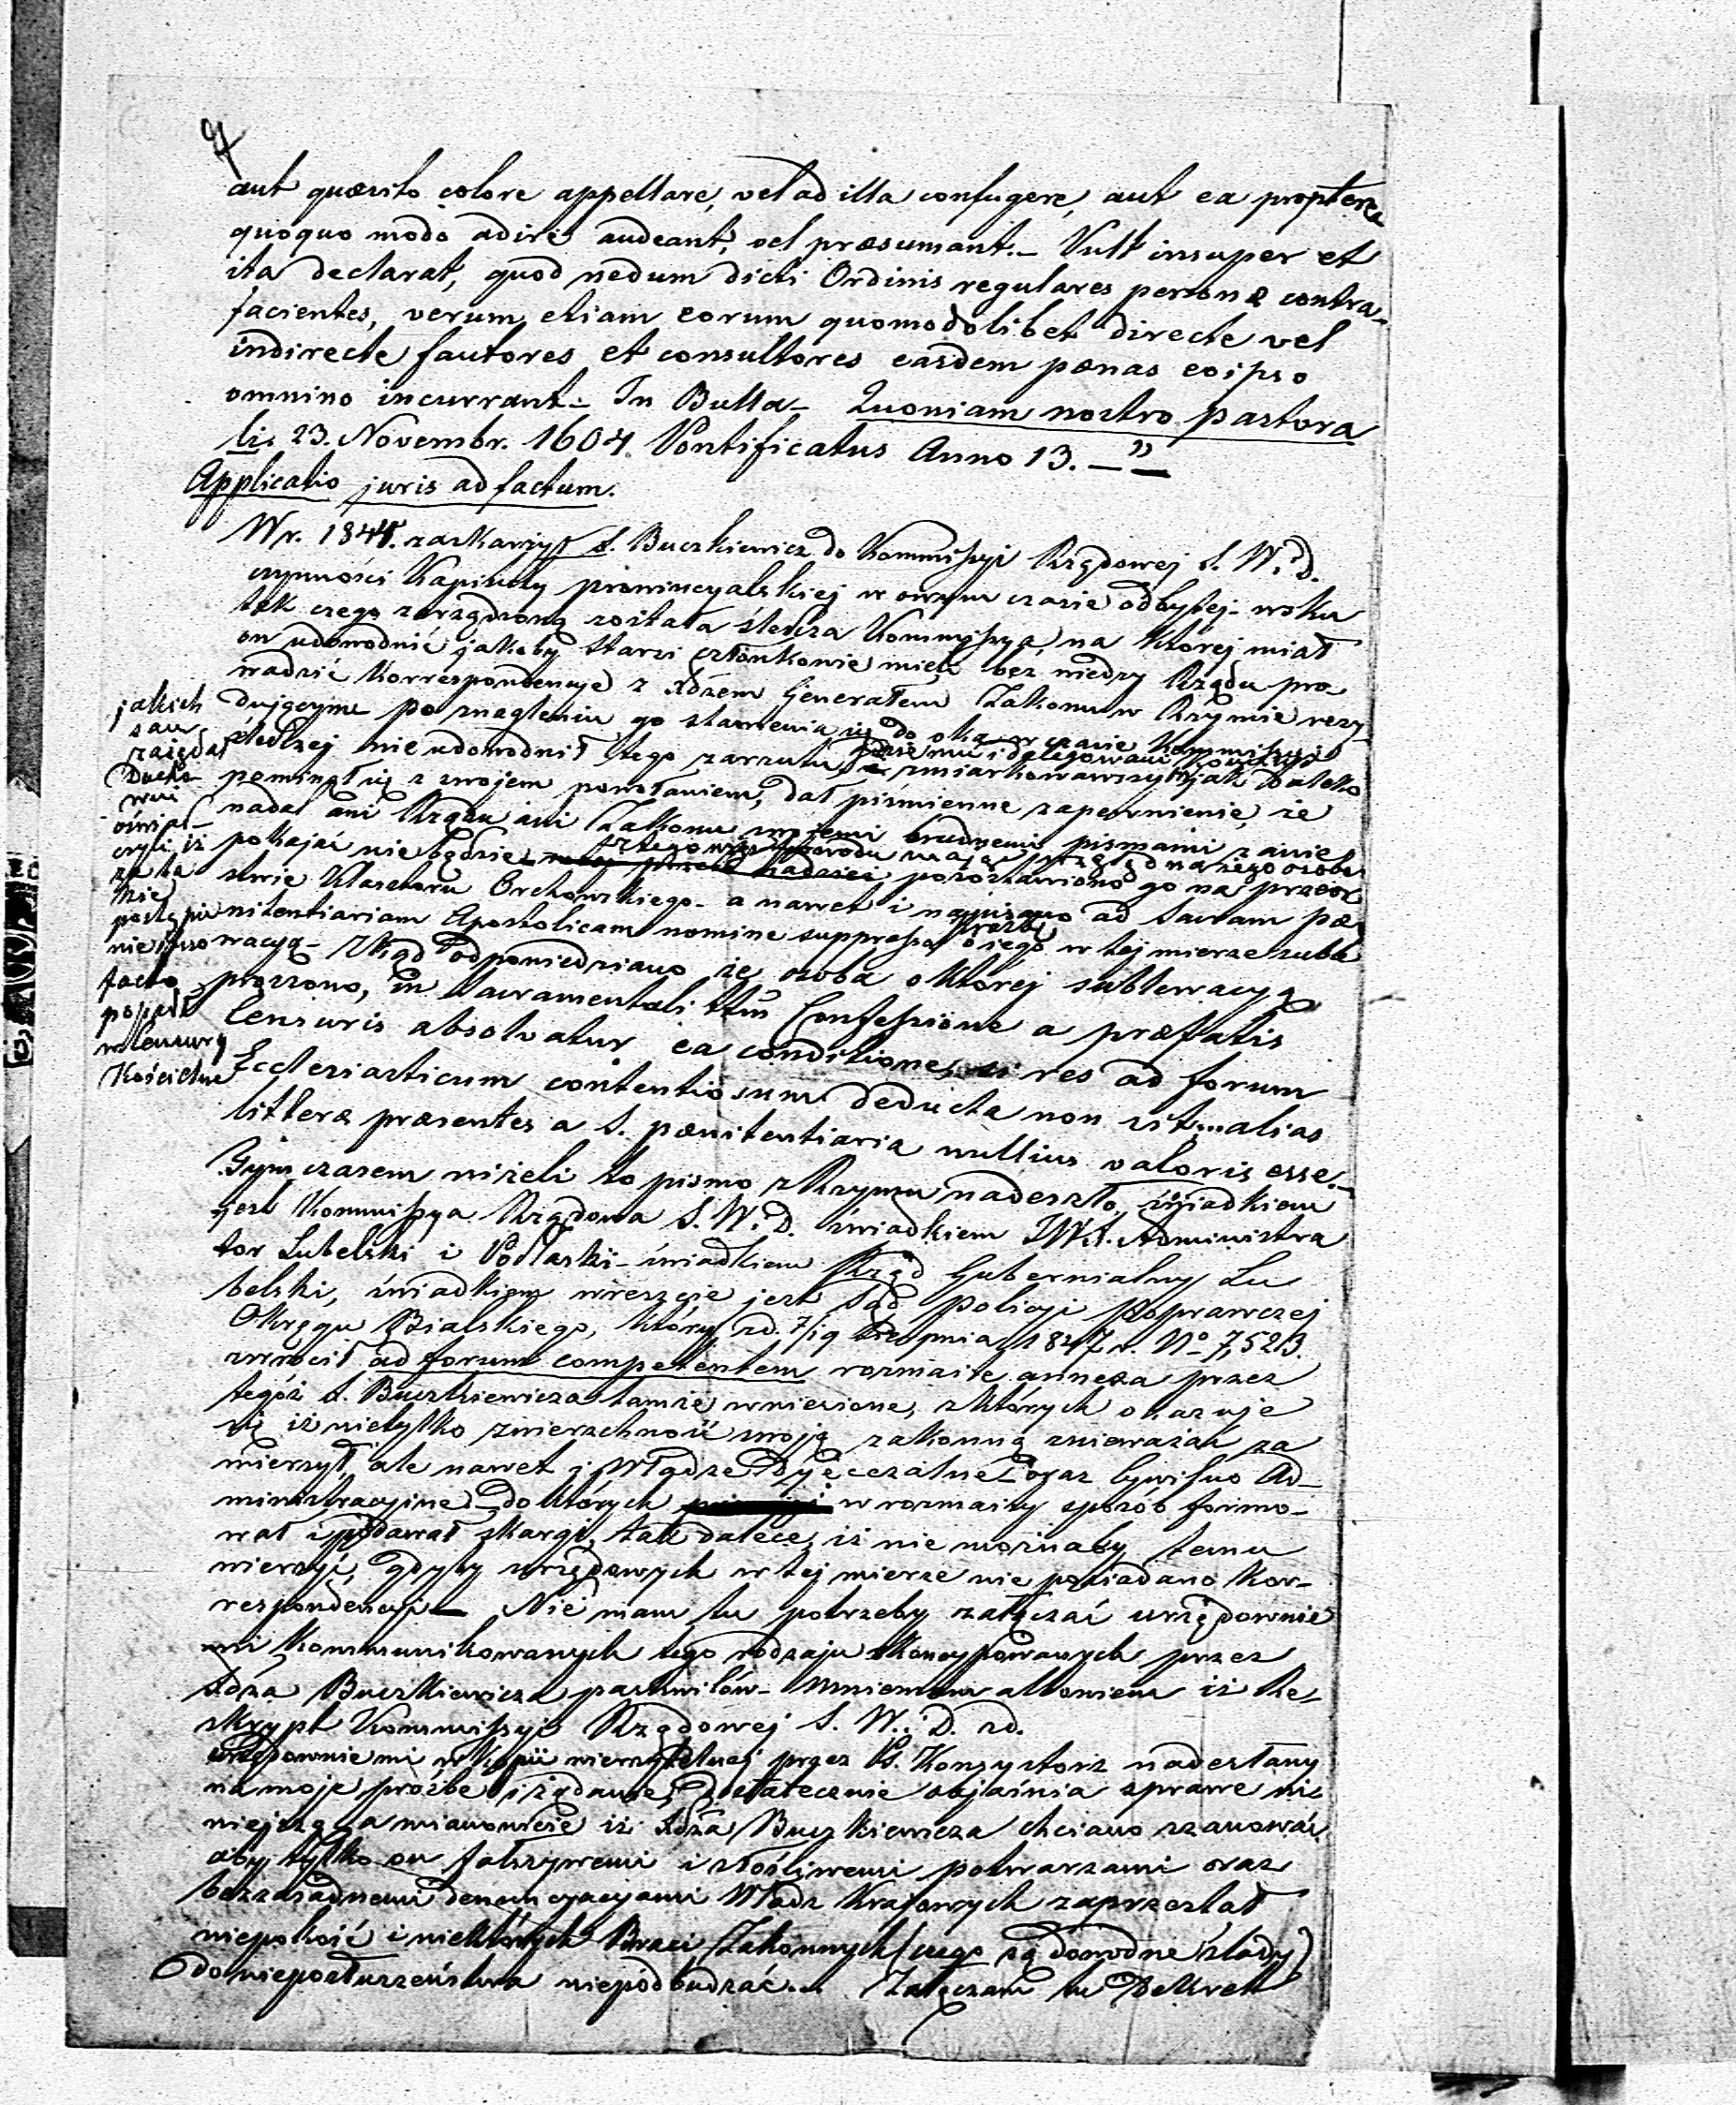 aut quæsito colore appellare, vel ad illa confugere, aut ea propterea
quoquo modo adire audeant, vel præsumant.— Vult insuper et
ita declarat, quod nedum dicti Ordinis regulares personæ contra-
facientes, verum etiam eorum quomodolibet directe vel
indirecte fautores et consultores easdem pœnas eo ipso
omnino incurrant.— In Bulla — Quoniam nostro pastora
lis 23. Novembr. 1604. Pontificatus Anno 13. — "
Applicatio juris ad factum.
W r. 184 zaskarżył X. Buczkiewicz do Kommissyi Rządowej S. W. i D.
czynności Kapituły prowincyalskiej w owym czasie odbytej — wsku
tek czego zarządzoną została śledcza Kommissya, na której miał
on udowodnić jakoby starsi członkowie mieli bez wiedzy Rządu pro
wadzić Korrespondencye z Xdzem Generałem Zakonu w Rzymie rezy-
dującym po znagleniu go stawienia się do oka w czasie Kommissyi
śledczej nie udowodnił tego zarzutu, zmiarkowawszy jak daleko
jakich
sam
zażądał
Ducho-
wni
oświad-
czyli iż
za ta
kie
postępo
nie ipso
facto
popadł
w Cenzury
Kościelne
pominął się z swojem powołaniem, dał piśmienne zapewnienie, że
nadal ani Rządu ani Zakonu swojemi brudnemi pismami zawie
pokajać nie będzie pozostawiono go na przeor
stwie Klasztoru Orchowskiego — a nawet i napisano ad Sacram pœ
nitentiariam Apostolicam nomine suppresso prosząc o jego w tej mierze suble
wacyą — Zkąd odpowiedziano że osoba o której sublewacyą
proszono, in Sacramentali ttũ Confessione a præfatis
Censuris absolvatur ea conditione, si res ad forum
Ecclesiasticum contentiosum deducta non sit, alias
litteræ præsentes a S. pœnitentiaria nullius valoris esse.—
Tymczasem niżeli to pismo z Rzymu nadeszło, świadkiem
jest Kommissya Rządowa S. W. i D. świadkiem JWX. Administra
tor Lubelski i Podlaski — świadkiem Rząd Gubernialny Lu
belski, świadkiem wreszcie jest Sąd policyi poprawczej
Okręgu Bialskiego, który zd. 7/19 Sierpnia 1847 r. No 7,523.
zwrócił ad forum competentem rozmaite annexa przez
tegóż X. Buczkiewicza tamże wniesione, z których okazuje
się iż nietylko zwierzchność swoją zakonną znieważać za
mierzył, ale nawet i Władze Dyecezalne oraz Cywilno Ad-
ministracyjne — do których w rozmaity sposób formo-
wał i podawał skargi, tak dalece, iż nie możnaby temu
wierzyć, gdyby urzędowych w tej mierze nie posiadano Kor-
respondencyi — Nie mam tu potrzeby załączać urzędownie
mi kommunikowanych tego rodzaju skoncypowanych przez
Xdza Buczkiewicza paszkwilów — Mniemam albowiem iż Re-
skrypt Kommissyi Rządowej S. W. i D. zd.
urzędownie mi w kopii wierzytelnej przez Ps. Konsystorz nadesłany
na moje prośbe i żądanie, dostatecznie objaśnia sprawe ni
niejszą, a mianowicie iż Xdza Buczkiewicza chciano szanować
aby tylko on fałszywemi i złośliwemi potwarzami oraz
bezzasadnemi denuncyacyami Władz Krajowych zaprzestał
niepokoić i niektórych Braci Zakonnych (czego są dowodne ślady)
do nieposłuszeństwa niepodbudzać.— Załączam tu Dekret